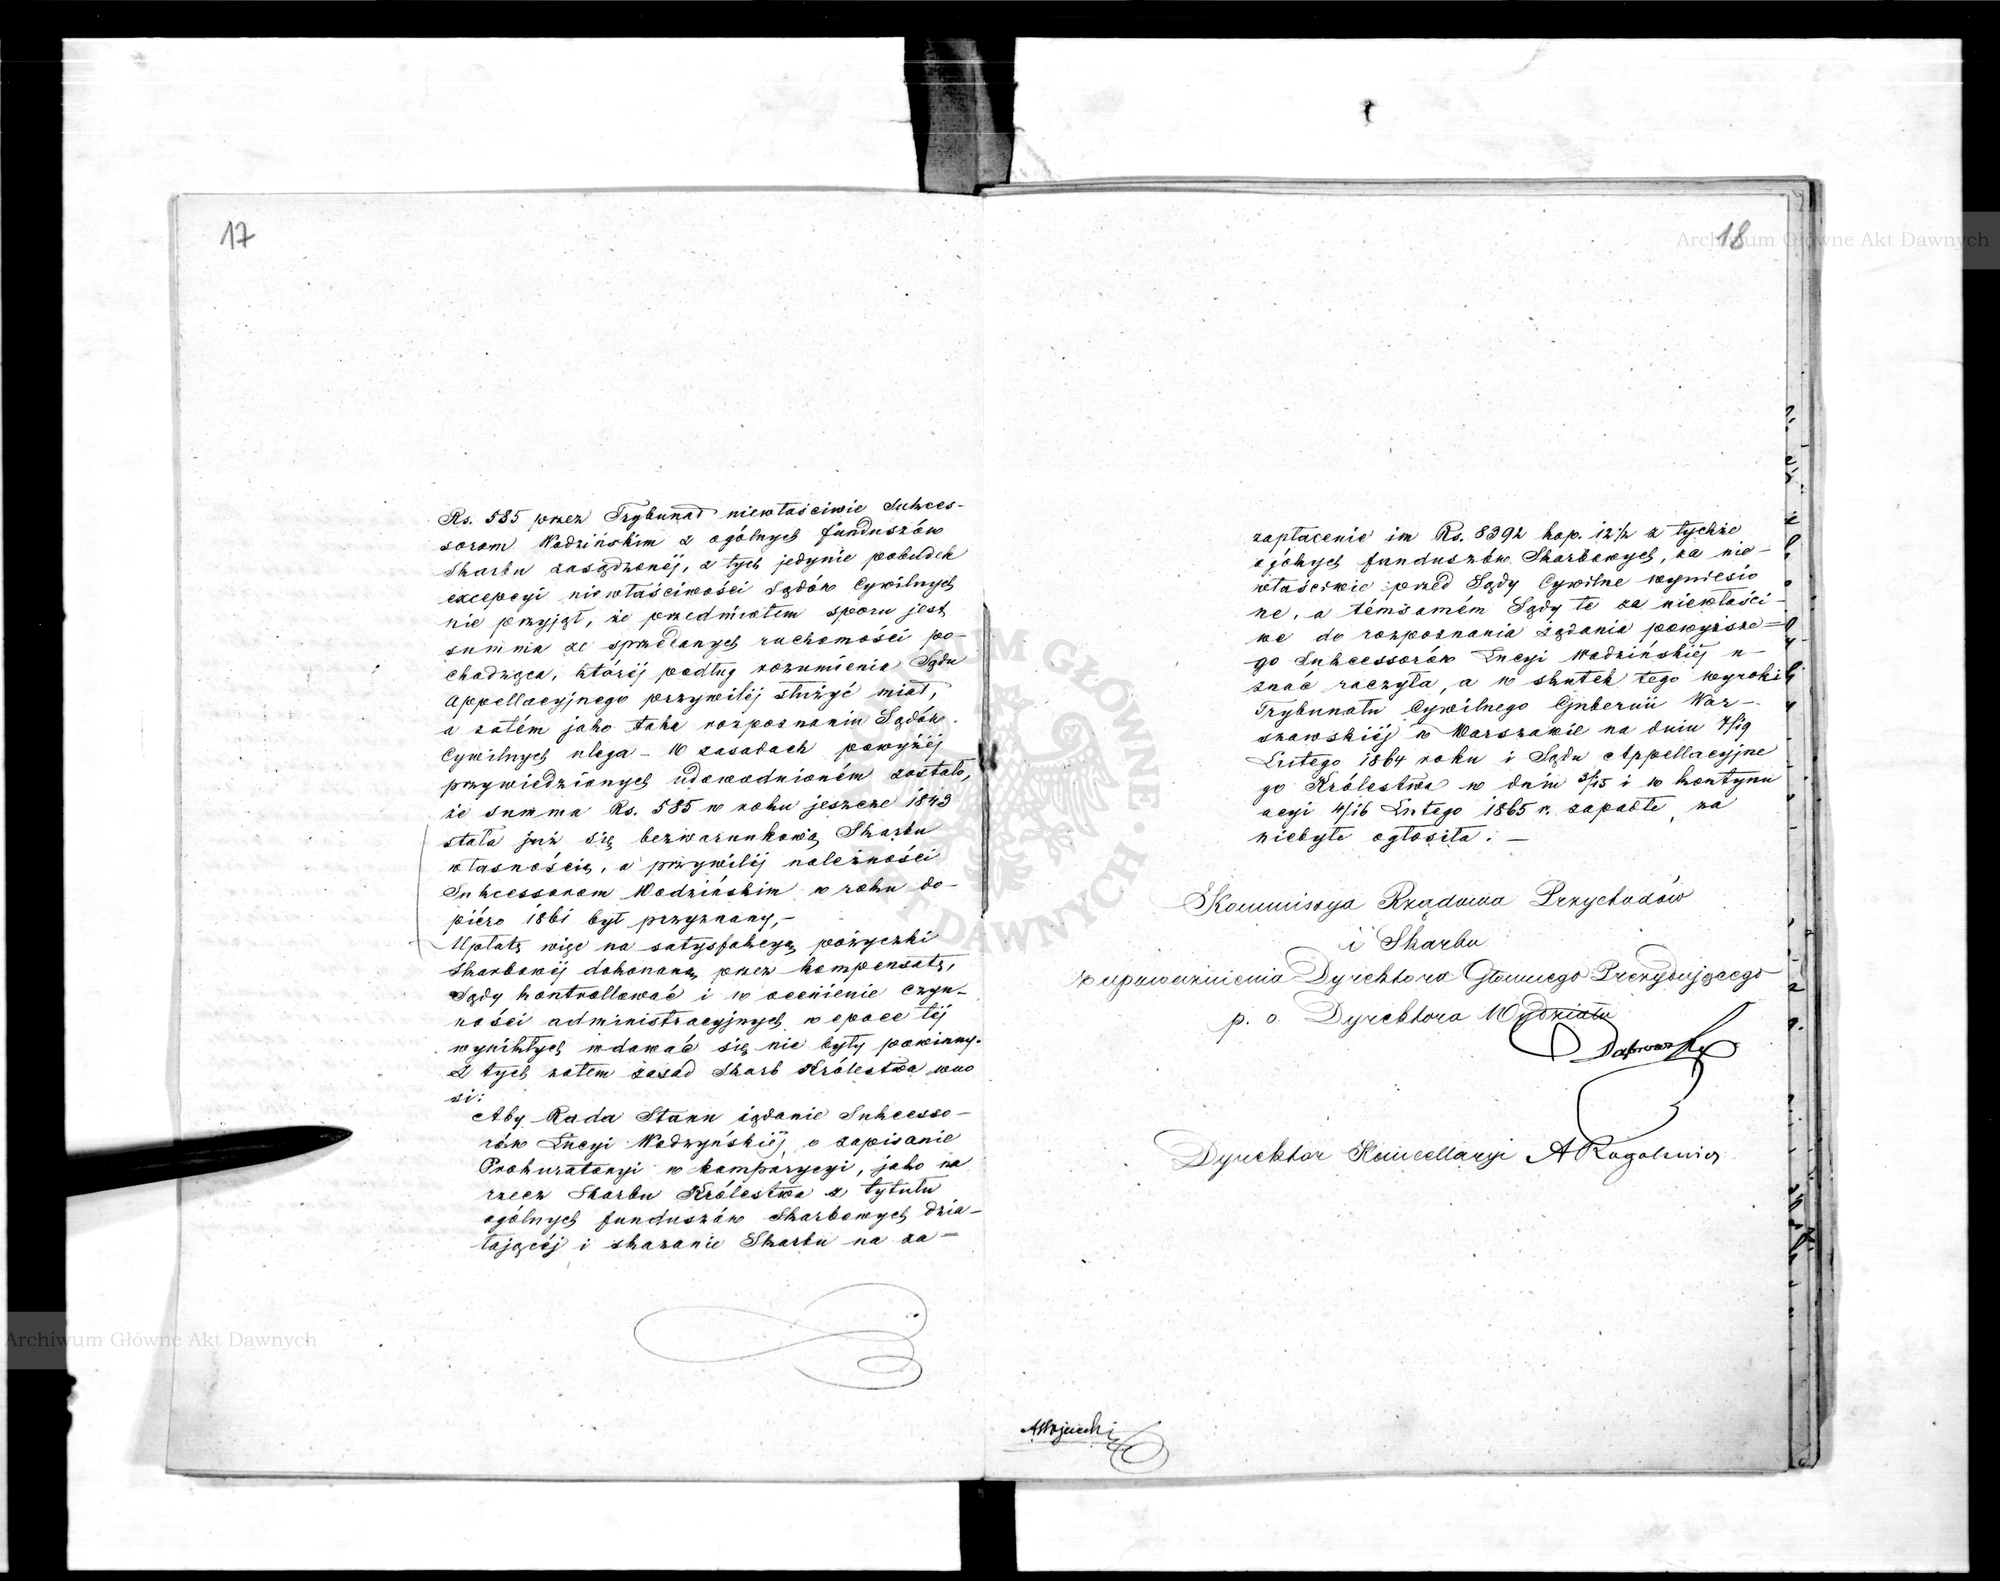 17
Rs. 585 przez Trybunał niewłaściwie Sukces-
sorom Wodzińskim z ogólnych funduszów
Skarbu zasądzonéj, z tych jedynie pobudek
excepcyi niewłaściwości Sądów Cywilnych
nie przyjął, że przedmiotem sporu jest
summa ze sprzedanych ruchomości po-
chodząca, któréj podług rozumienia Sądu
Appellacyjnego przywiléj służyć miał,
a zatém jako taka rozpoznaniu Sądów
Cywilnych ulega – W zasadach powyżéj
przywiedzionych udowodnioném zostało,
że summa Rs. 585 w roku jeszcze 1843
stała już się bezwarunkową Skarbu
własnością, a przywiléj należności
Sukcessorom Wodzińskim w roku do-
piéro 1861 był przyznany,–
Upłatę więc na satysfakcyą pożyczki
Skarbowéj dokonaną przez kompensatę,
Sądy kontrollować i w ocenienie czyn-
ności administracyjnych w epoce téj
wynikłych wdawać się nie były powinny.
Z tych zatem zasad Skarb Królestwa wno
si:
Aby Rada Stanu żądanie Sukcesso-
rów Lucyi Wodzyńskiéj, o zapisanie
Prokuratoryi w komparycyi, jako na
rzecz Skarbu Królestwa z tytułu
ogólnych funduszów Skarbowych dzia-
łającéj i skazanie Skarbu na za-
18
zapłacenie im Rs. 8392 kop. 12½ z tychże
ogólnych funduszów Skarbowych, za nie-
właściwie przed Sądy Cywilne wyniesio
ne, a témsamém Sądy te za niewłaści-
we do rozpoznania żądania powyższe=
go Sukcessorów Lucyi Wodzińskiéj u-
znać raczyła, a w skutek tego wyroki
Trybunału Cywilnego Gubernii War-
szawskiéj w Warszawie na dniu 7/19
Lutego 1864 roku i Sądu Appellacyjne
go Królestwa w dniu 3/15 i w kontynu
acyi 4/16 Lutego 1865 r. zapadłe, za
niebyłe ogłosiła. –
Kommissya Rządowa Przychodów
i Skarbu
z upoważnienia Dyrektora Głównego Prezydującego
p. o. Dyrektora Wydziału
Dąbrowski
Dyrektor Kancellaryi A Rogalewicz
AWojcicki
Archiwum Główne Akt Dawnych
Archiwum Główne Akt Dawnych